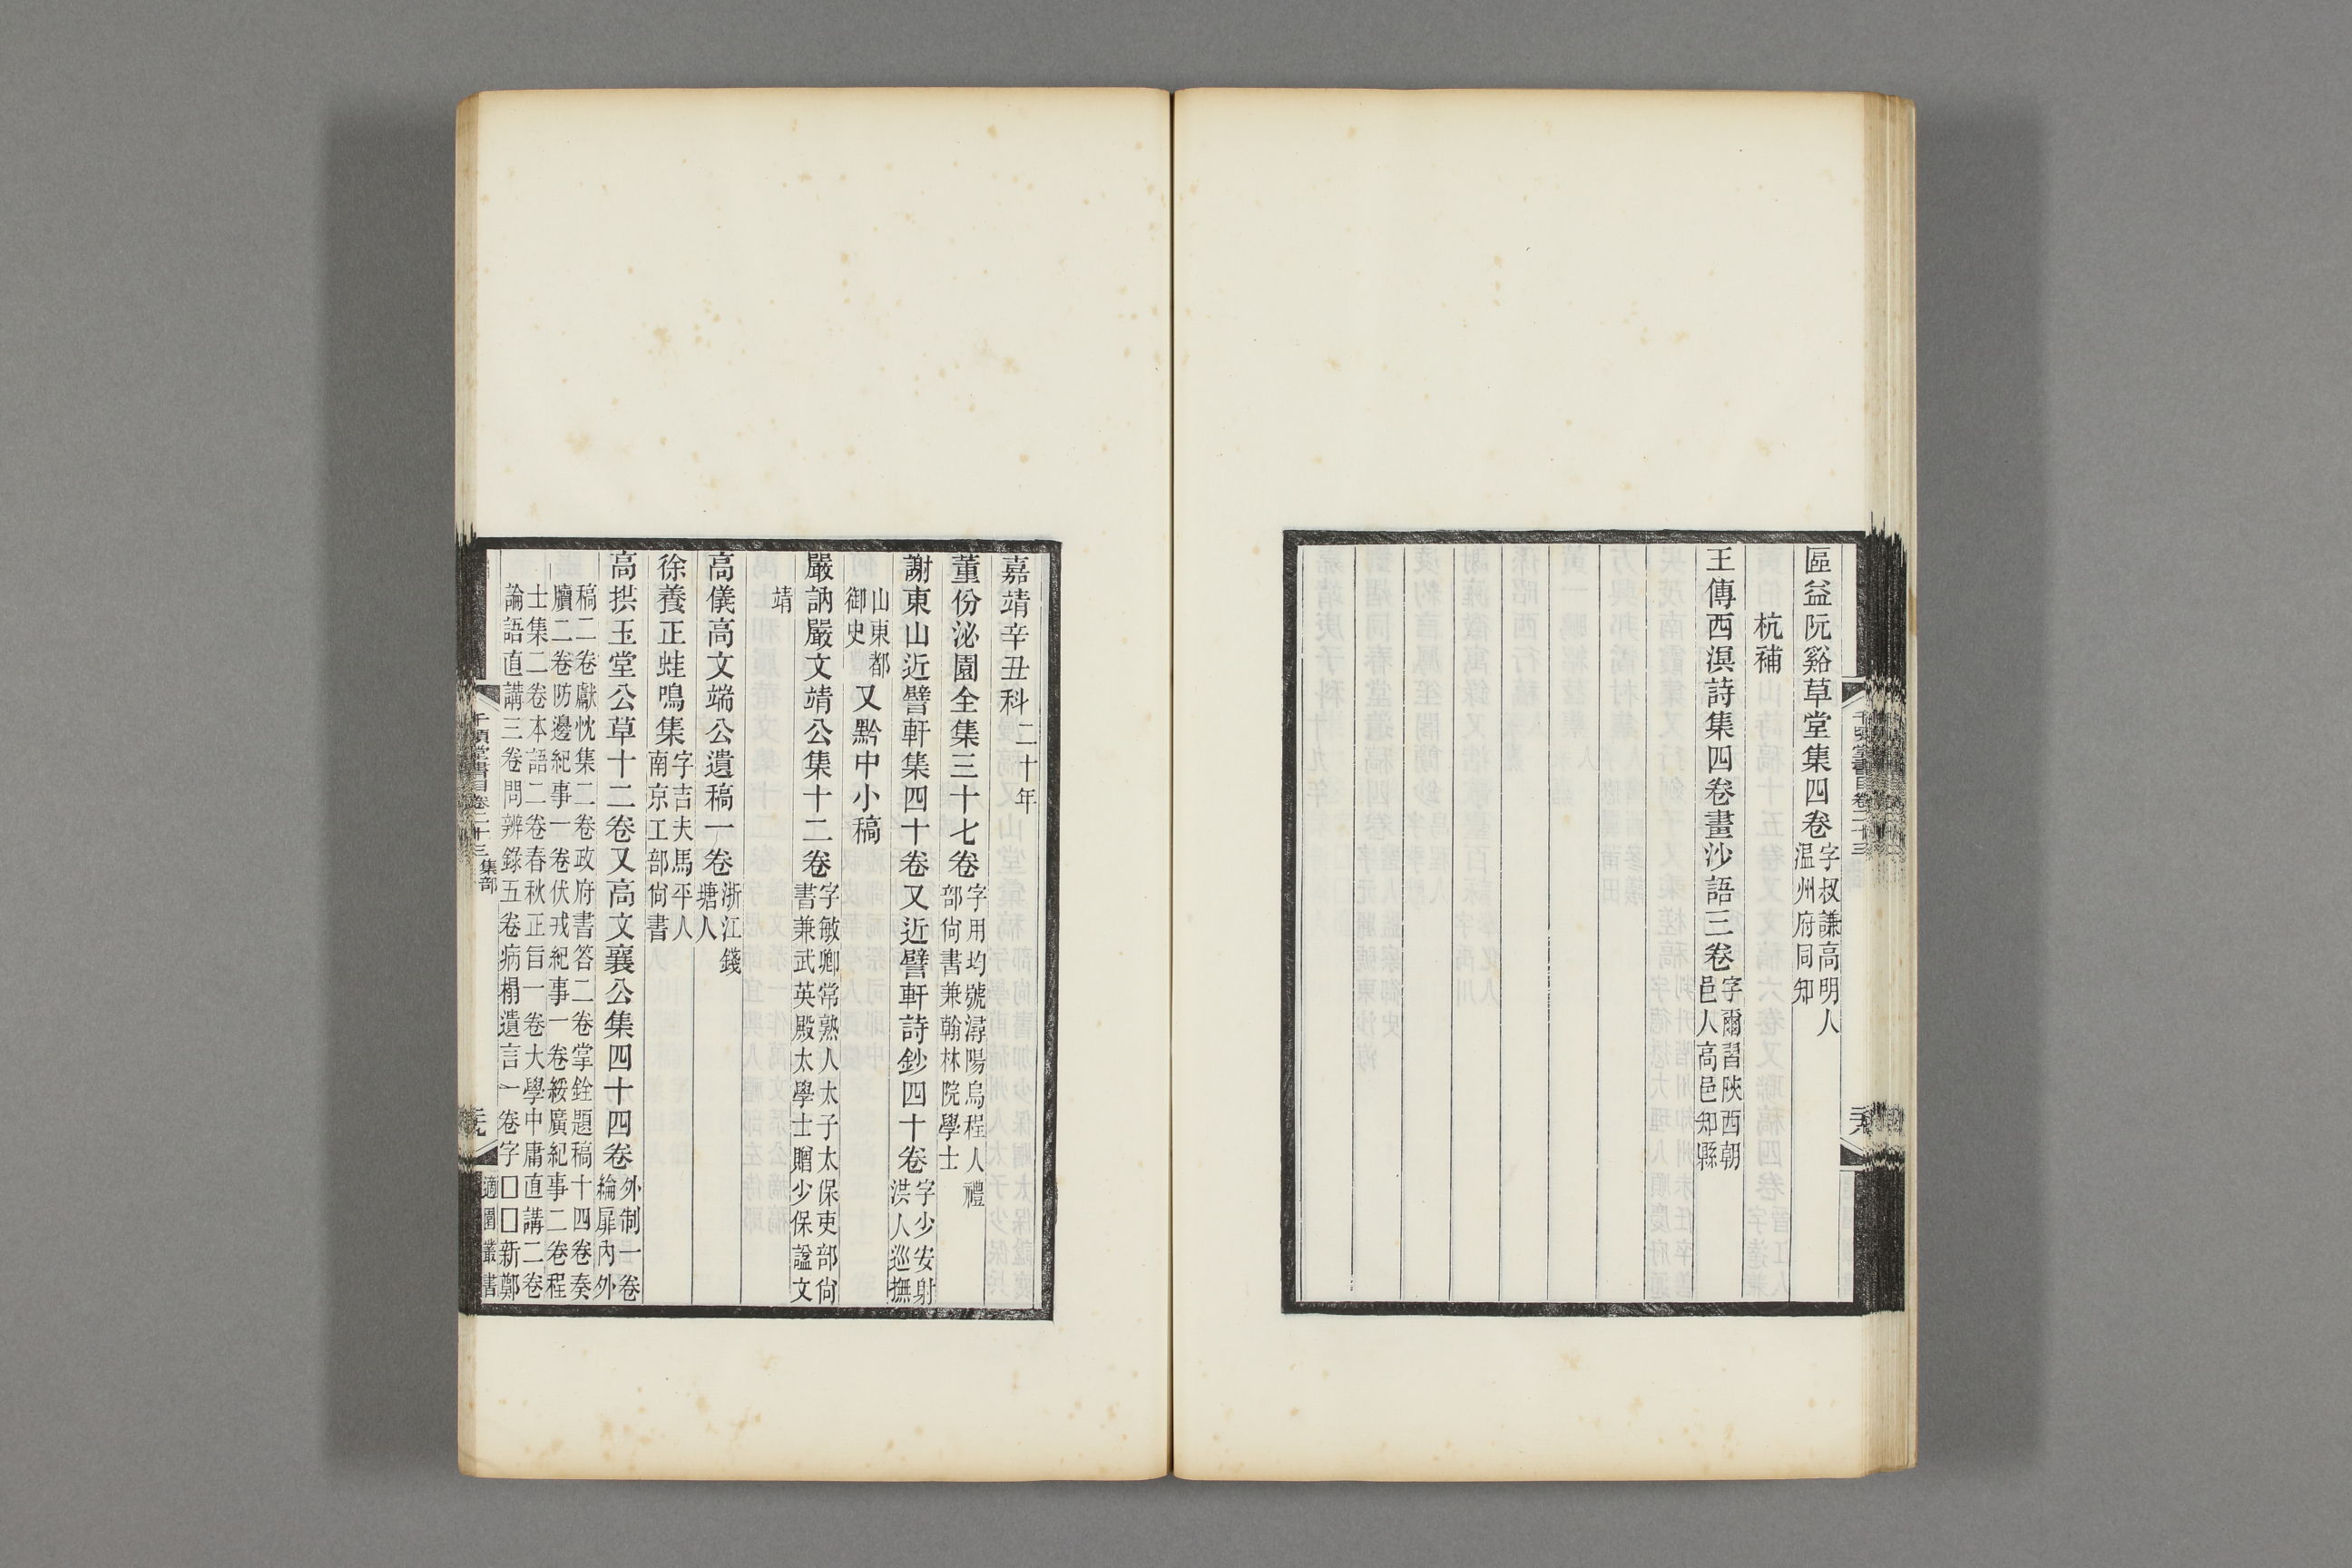 區益阮谿草堂集四卷字叔謙高明人溫州府同知
杭補
王傳西溟詩集四卷畫沙語三卷字爾習陝西朝邑人高邑知縣
千頃堂書目卷二十三
嘉靖辛丑科二十年
董份泌園全集三十七卷字用均號潯陽烏程人禮部尙書兼翰林院學士
謝東山近譬軒集四十卷又近譬軒詩鈔四十卷字少安射洪人巡撫
山東都御史又黔中小稿
嚴訥嚴文靖公集十二卷字敏卿常熟人太子太保吏部尙書兼武英殿太學士贈少保諡文
靖
高儀高文端公遺稿一卷浙江錢塘人
徐養正蛙鳴集字吉夫馬平人南京工部尙書
高拱玉堂公草十二卷又高文襄公集四十四卷外制一卷綸扉內外
稿二卷獻忱集二卷政府書答二卷掌銓題稿十四卷奏
牘二卷防邊紀事一卷伏戎紀事一卷綏廣紀事二卷程
士集二卷本語二卷春秋正旨一卷大學中庸直講二卷
論語直講三卷問辨錄五卷病榻遺言一卷字□□新鄭
千頃堂書目卷二十三 集部
適園叢書